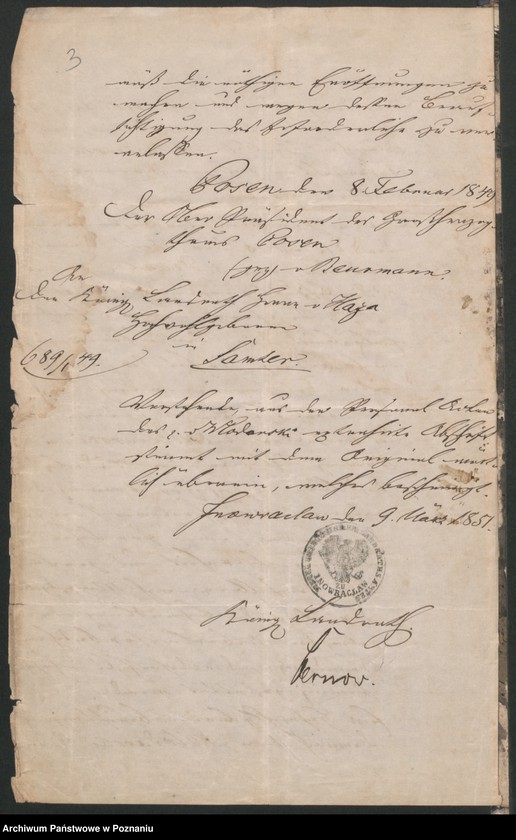 3
die nöthigen Eröffnungen zu
machen und wegen dessen
des Erforderliche zu ver
anlassen.
Posen den 8 Februar 1849
Der Ober Präsident des Großherzog-
thums Posen
(gez) v Beurmann.
An
den Königl Landrath Herrn v Haza
Hochwohlgeboren
in
Samter.
689/1 49.
Vorstehende, aus den Personal Acten
des p. extrahirte Abschrift
stimmt mit dem Original wört-
lich überein, welches bescheinigt.
Inowraclaw den 9. März 1851.
ZU
INOWRACLAW
Königl Landrath.
Fernow.
Archiwum Państwowe w Poznaniu